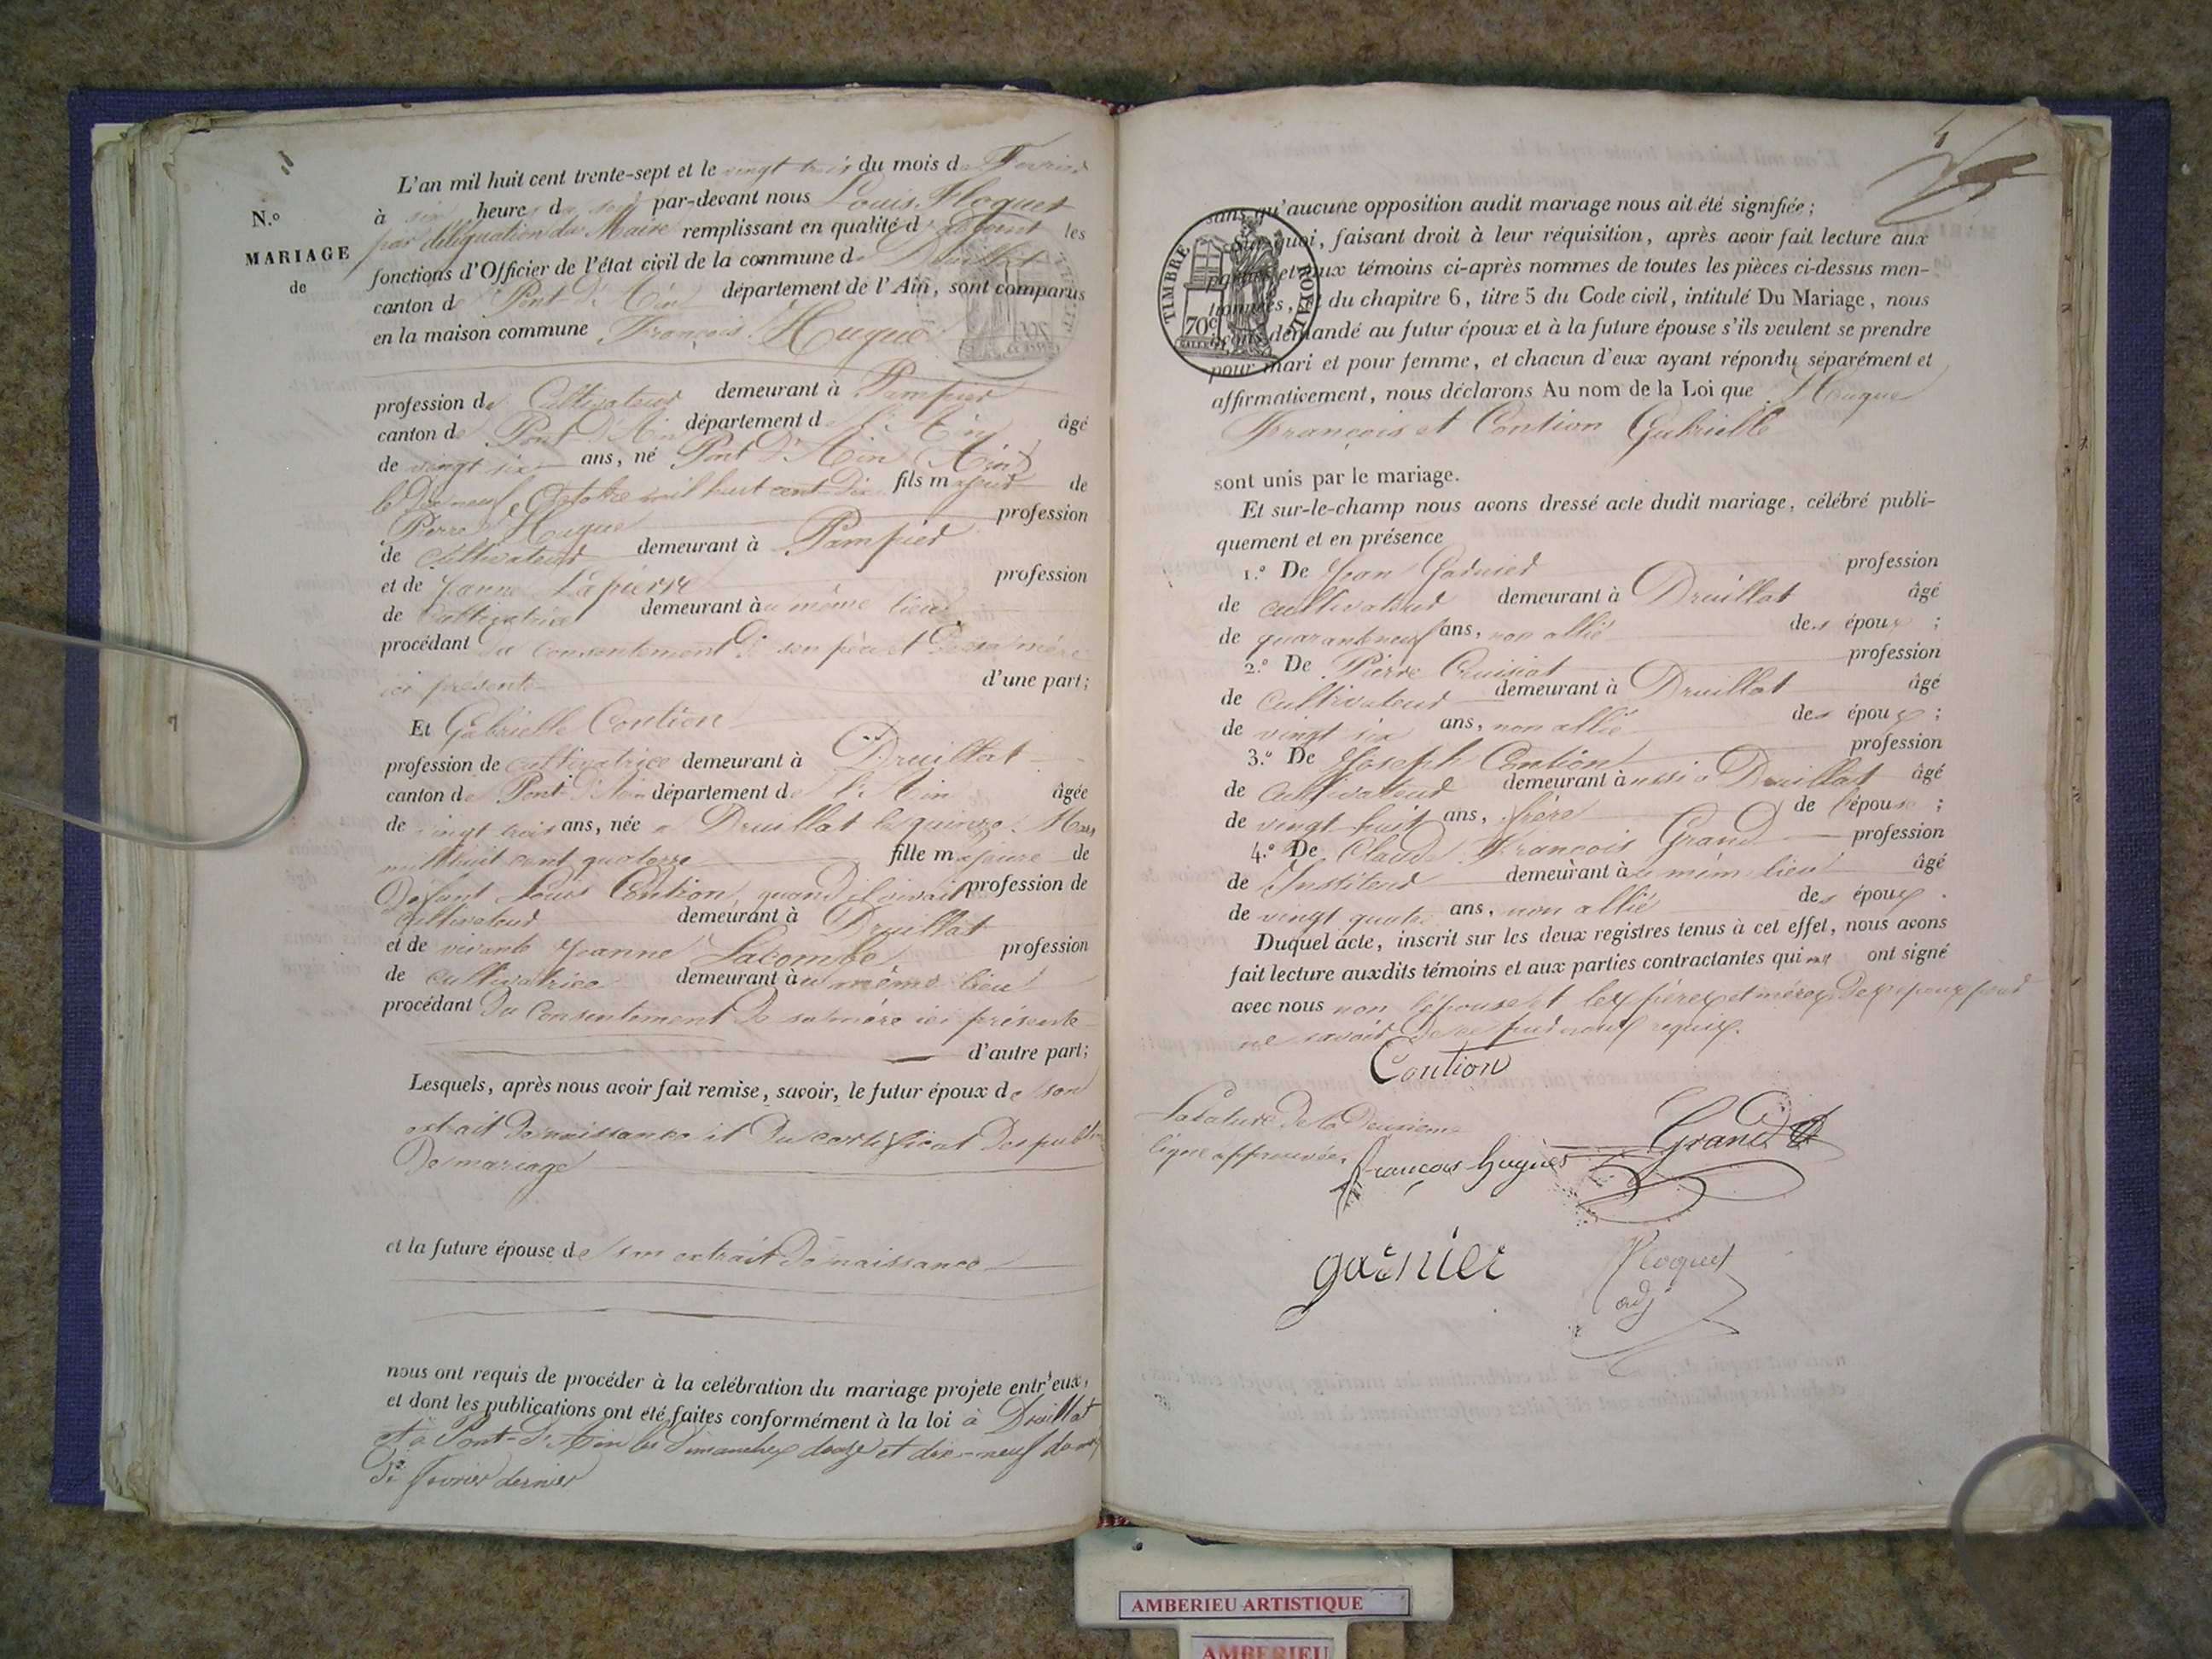 N.o
MARIAGE
de
L'an mil huit cent trente-sept et le vingt trois du mois de Fevrier
à six heures du soir par-devant nous Louis Floquet
par délégation du Maire remplissant en qualité d'adjoint les
fonctions d'Officier de l'état civil de la commune de Druillat
canton de Pont d'Ain département de l'Ain, sont comparus
en la maison commune François Hugues
profession de Cultivateur demeurant à Pampier
canton de Pont d'Ain département de l'Ain âgé
de vingt six ans, né Pont d'Ain (Ain)
le dix neuf Octobre mil huit cent dix fils majeur de
Pierre Hugue profession
de Cultivateur demeurant à Pampier
et de Jeanne Lapierre profession
de Cultivatrice demeurant au même lieu
procédant du consentement de son père et de sa mère
ici présents d'une part;
Et Gabrielle Contion
profession de cultivatrice demeurant à Druillat
canton de Pont d'Ain département de l'Ain âgée
de vingt trois ans, née à Druillat le quinze Mars
mil huit cent quatorze fille majeure de
Défunt Louis Contion, quand il vivait profession de
Cultivateur demeurant à Druillat
et de vivante Jeanne Lacombe profession
de cultivatrice demeurant au même lieu
procédant du Consentement de sa mère ici présente
d'autre part;
Lesquels, après nous avoir fait remise, savoir, le futur époux de son
extrait de naissance et du certificat des publ
De mariage
et la future épouse de son extrait de naissance
nous ont requis de procéder à la celébration du mariage projete entr'eux,
et dont les publications ont été faites conformément à la loi à Druillat
et à Pont-d'Ain les dimanches douze et dix-neuf
de fevrier dernier
TIMBRE ROYAL
70c
sans qu'aucune opposition audit mariage nous ait été signifiée;
Sur quoi, faisant droit à leur réquisition, après avoir fait lecture aux
parties et aux témoins ci-après nommes de toutes les pièces ci-dessus men-
tionnées, et du chapitre 6, titre 5 du Code civil, intitulé Du Mariage, nous
avons demandé au futur époux et à la future épouse s'ils veulent se prendre
pour mari et pour femme, et chacun d'eux ayant répondu séparément et
affirmativement, nous déclarons Au nom de la Loi que Hugue
François et Contion Gabrielle
sont unis par le mariage.
Et sur-le-champ nous avons dressé acte dudit mariage, célébré publi-
quement et en présence
1.o De Jean Garnier profession
de cultivateur demeurant à Druillat âgé
de quarante neuf ans, non allié des époux ;
2.o De Pierre Cruisiat profession
de Cultivateur demeurant à Druillat âgé
de vingt six ans, non allié des époux ;
3.o De Joseph Contion profession
de Cultivateur demeurant aussi à Druillat âgé
de vingt huit ans, frère de l'épouse ;
4.o De Claude François Grand profession
de Instituteur demeurant au même lieu âgé
de vingt quatre ans, non allié des époux .
Duquel acte, inscrit sur les deux registres tenus à cet effet, nous avons
fait lecture auxdits témoins et aux parties contractantes qui ont signé
avec nous non l'épouse et les pères et mères des époux pour
ne savoir de ce par nous requis.
Contion
La rature de la deuxieme
ligne approuvée.
françois hugues
Grand
garnier
Floquet
adj
AMBERIEU ARTISTIQUE
AMBERIEU